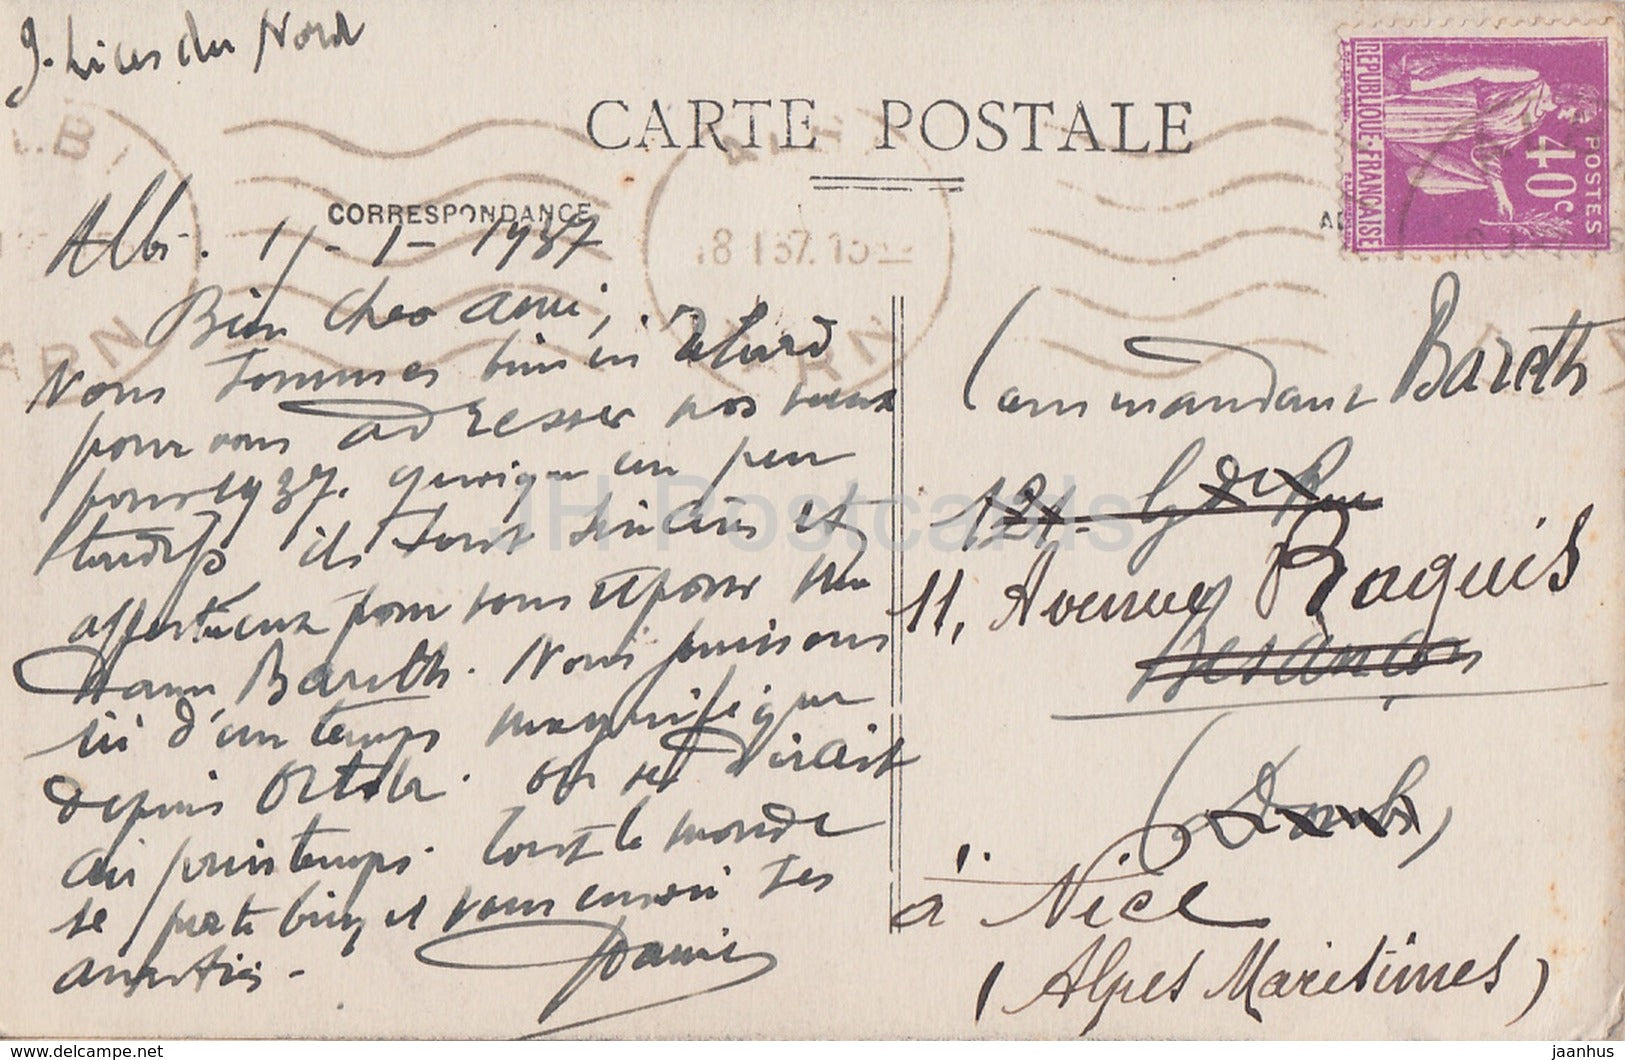 9. Lices du Nord
CARTE POSTALE
CORRESPONDANCE
ALBI
TARN
18 I 37. 15
REPUBLIQUE·FRANÇAISE
POSTES
40c
Albi. 11-1-1937
Bien cher ami,
Nous sommes bien en retard
pour vous adresser nos vœux
pour 1937. quoique un peu
tardifs ils sont sincères et
affectueux pour vous et pour Ma
dame Bareth. Nous jouissons
ici d'un temps magnifique
depuis Octobre. On se dirait
au printemps. Tout le monde
se porte bien et vous envoi ses
amitiés -
Commandant Bareth
121 - Gde Rue
11, Avenue Raguis
Besançon
(Doubs)
à Nice
(Alpes Maritimes)
JH Postcards
www.delcampe.net
jaanhus